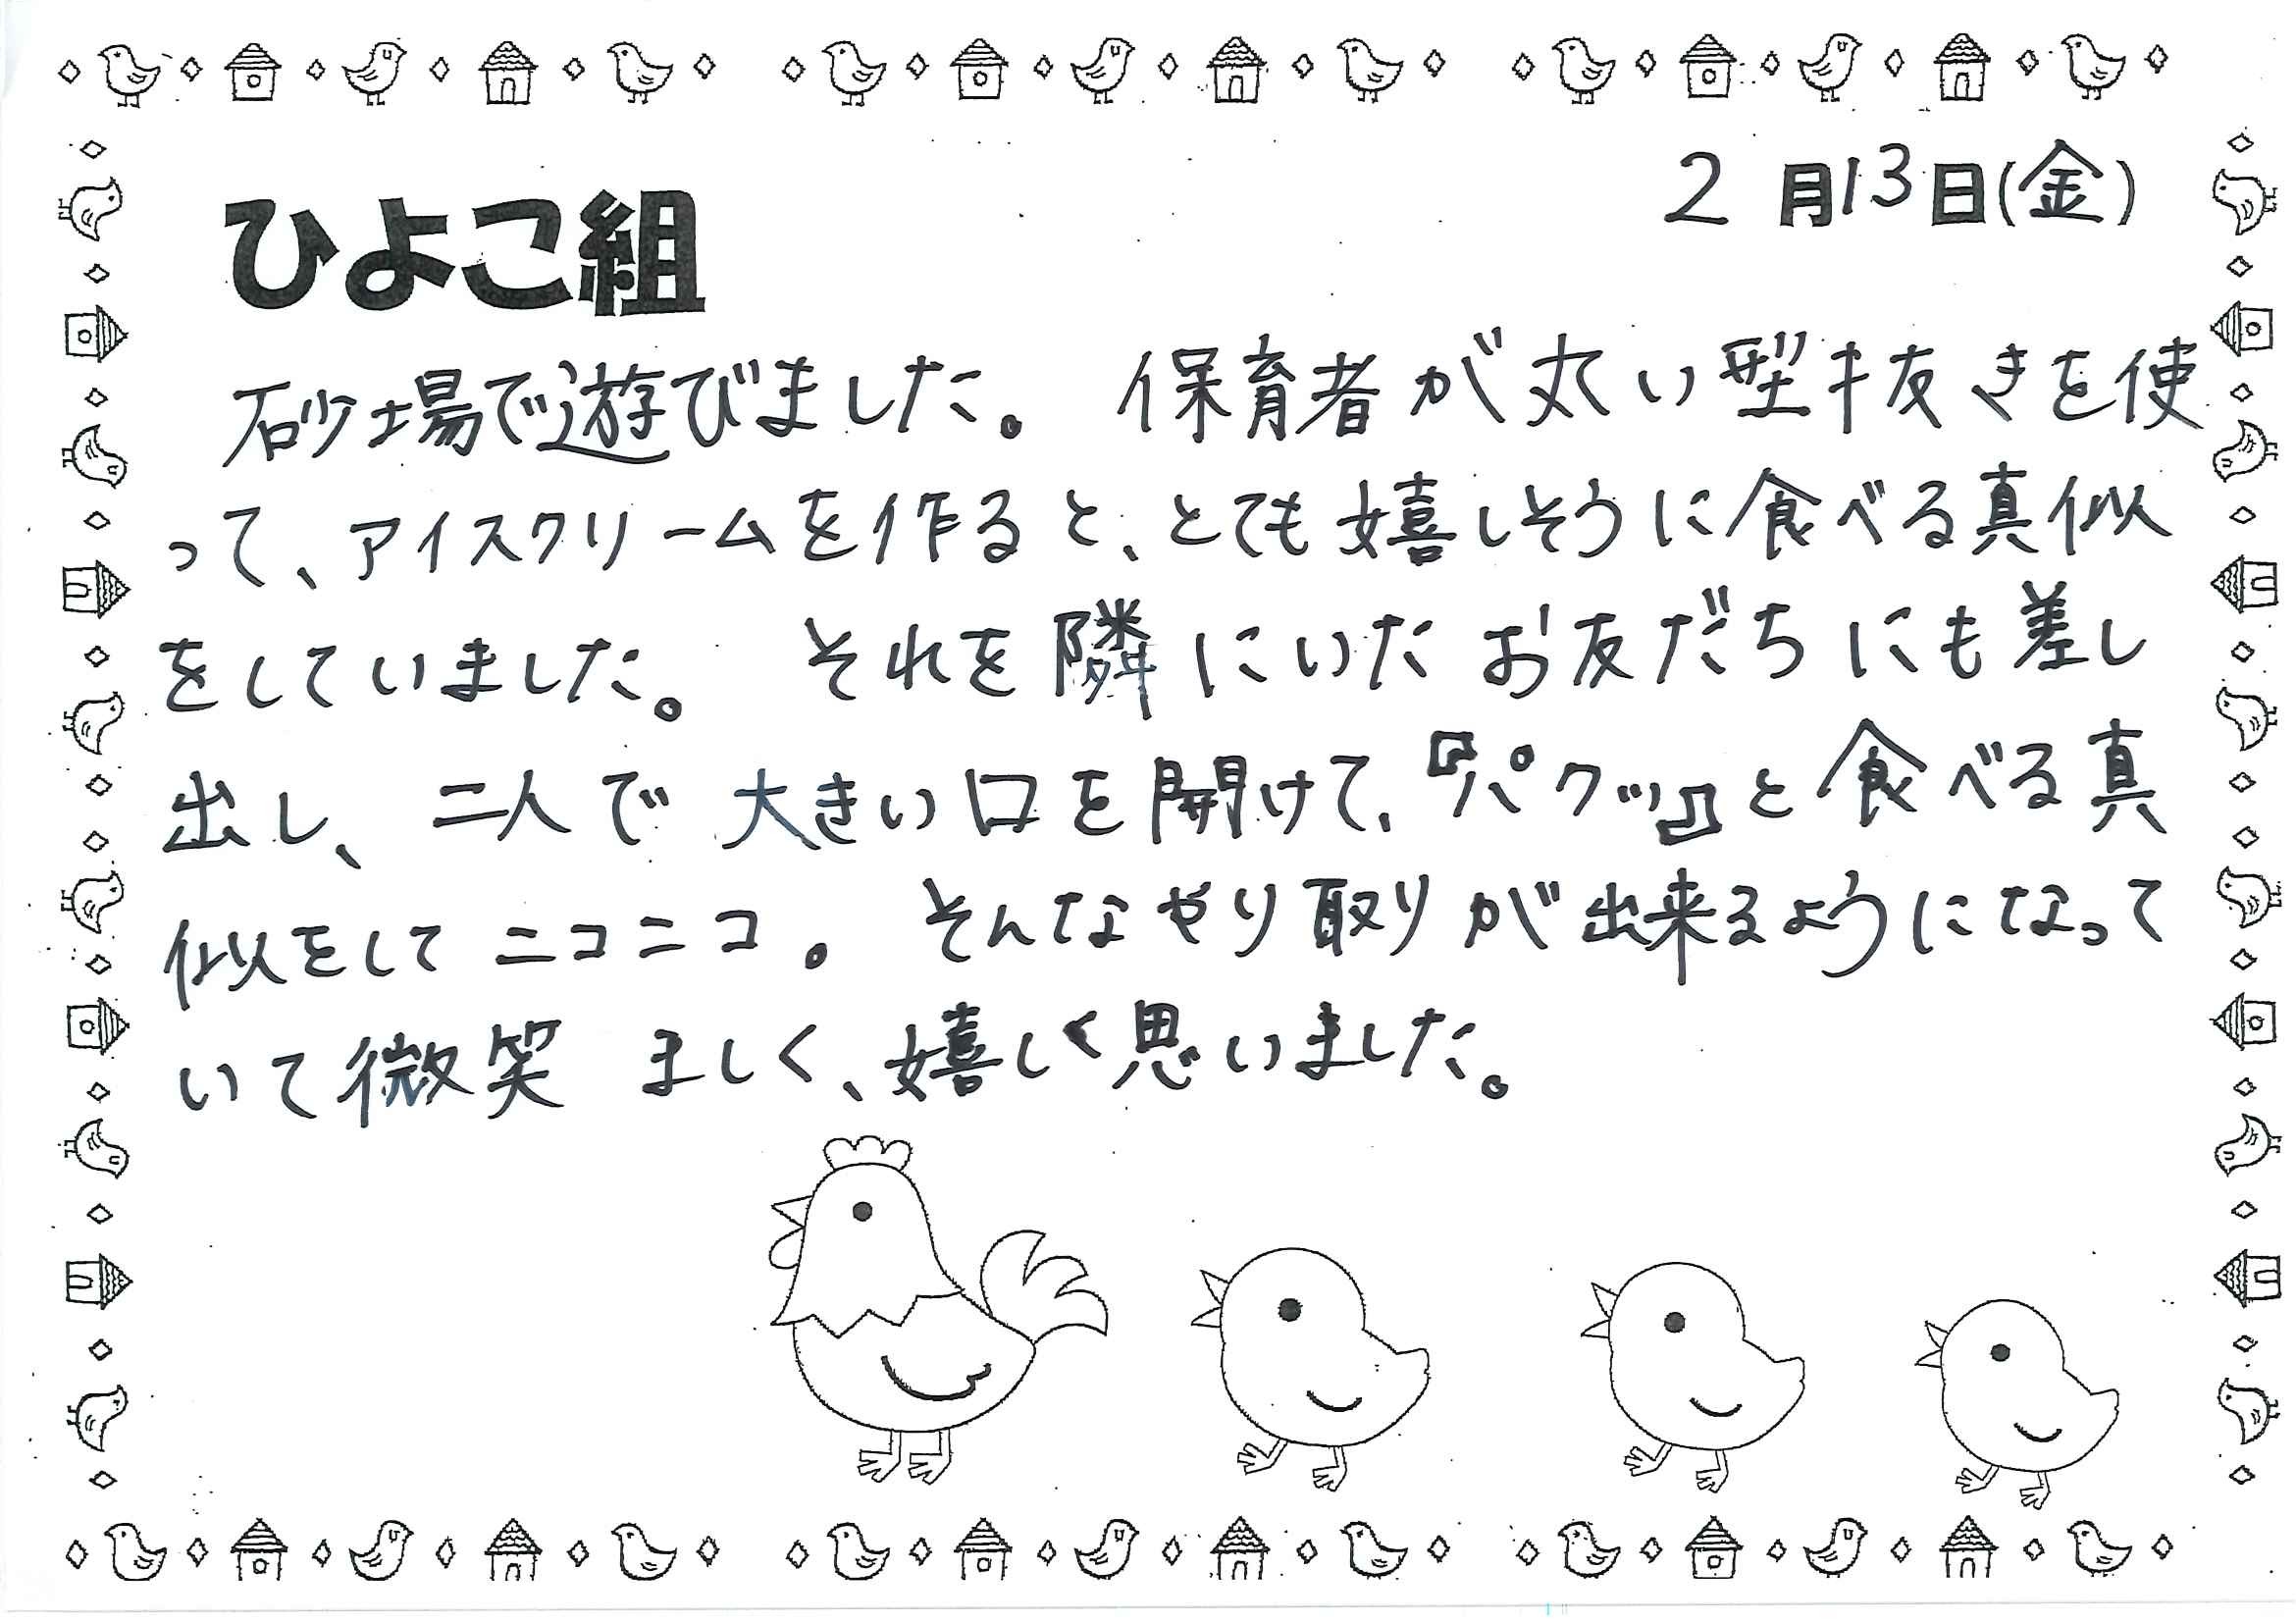 2月13日(金)
ひよこ組
砂場で遊びました。 保育者が丸い型抜きを使
って、アイスクリームを作ると、とても嬉しそうに食べる真似
をしていました。 それを隣にいたお友だちにも差し
出し、二人で大きい口を開けて、『パクッ』と食べる真
似をしてニコニコ。 そんなやり取りが出来るようになって
いて微笑ましく、嬉しく思いました。